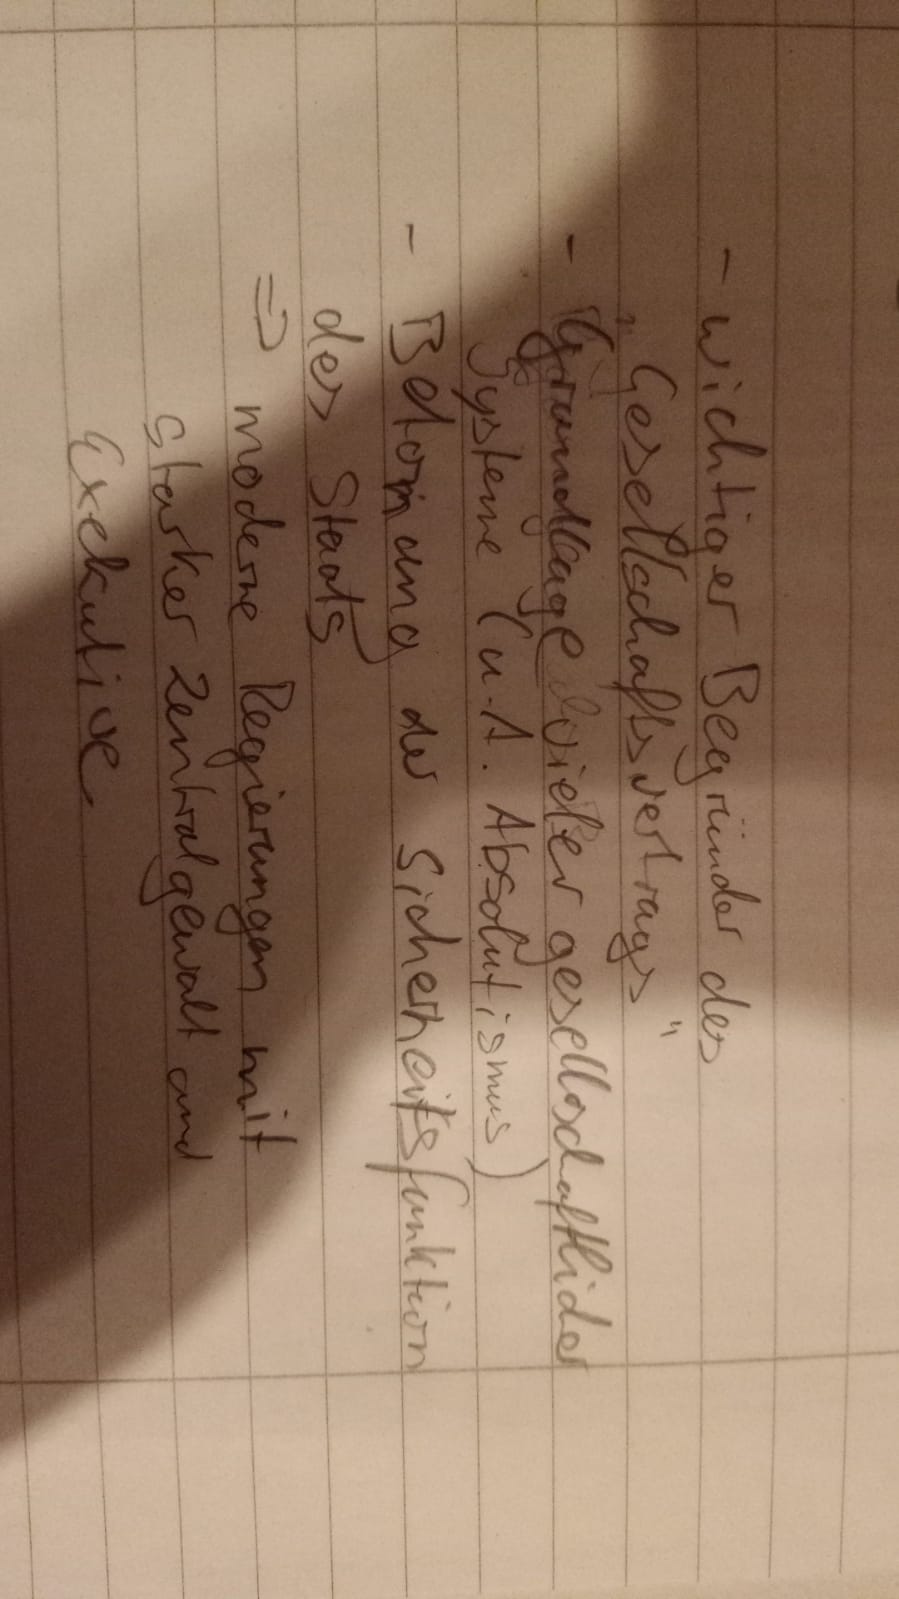 - wichtiger Begründer des
„Gesellschaftsvertrags"
- Grundlage vieler gesellschaftlicher
Systeme (u.A. Absolutismus)
- Betonung der Sicherheitsfunktion
des Staats
=> moderne Regierungen mit
starker Zentralgewalt und
Exekutive